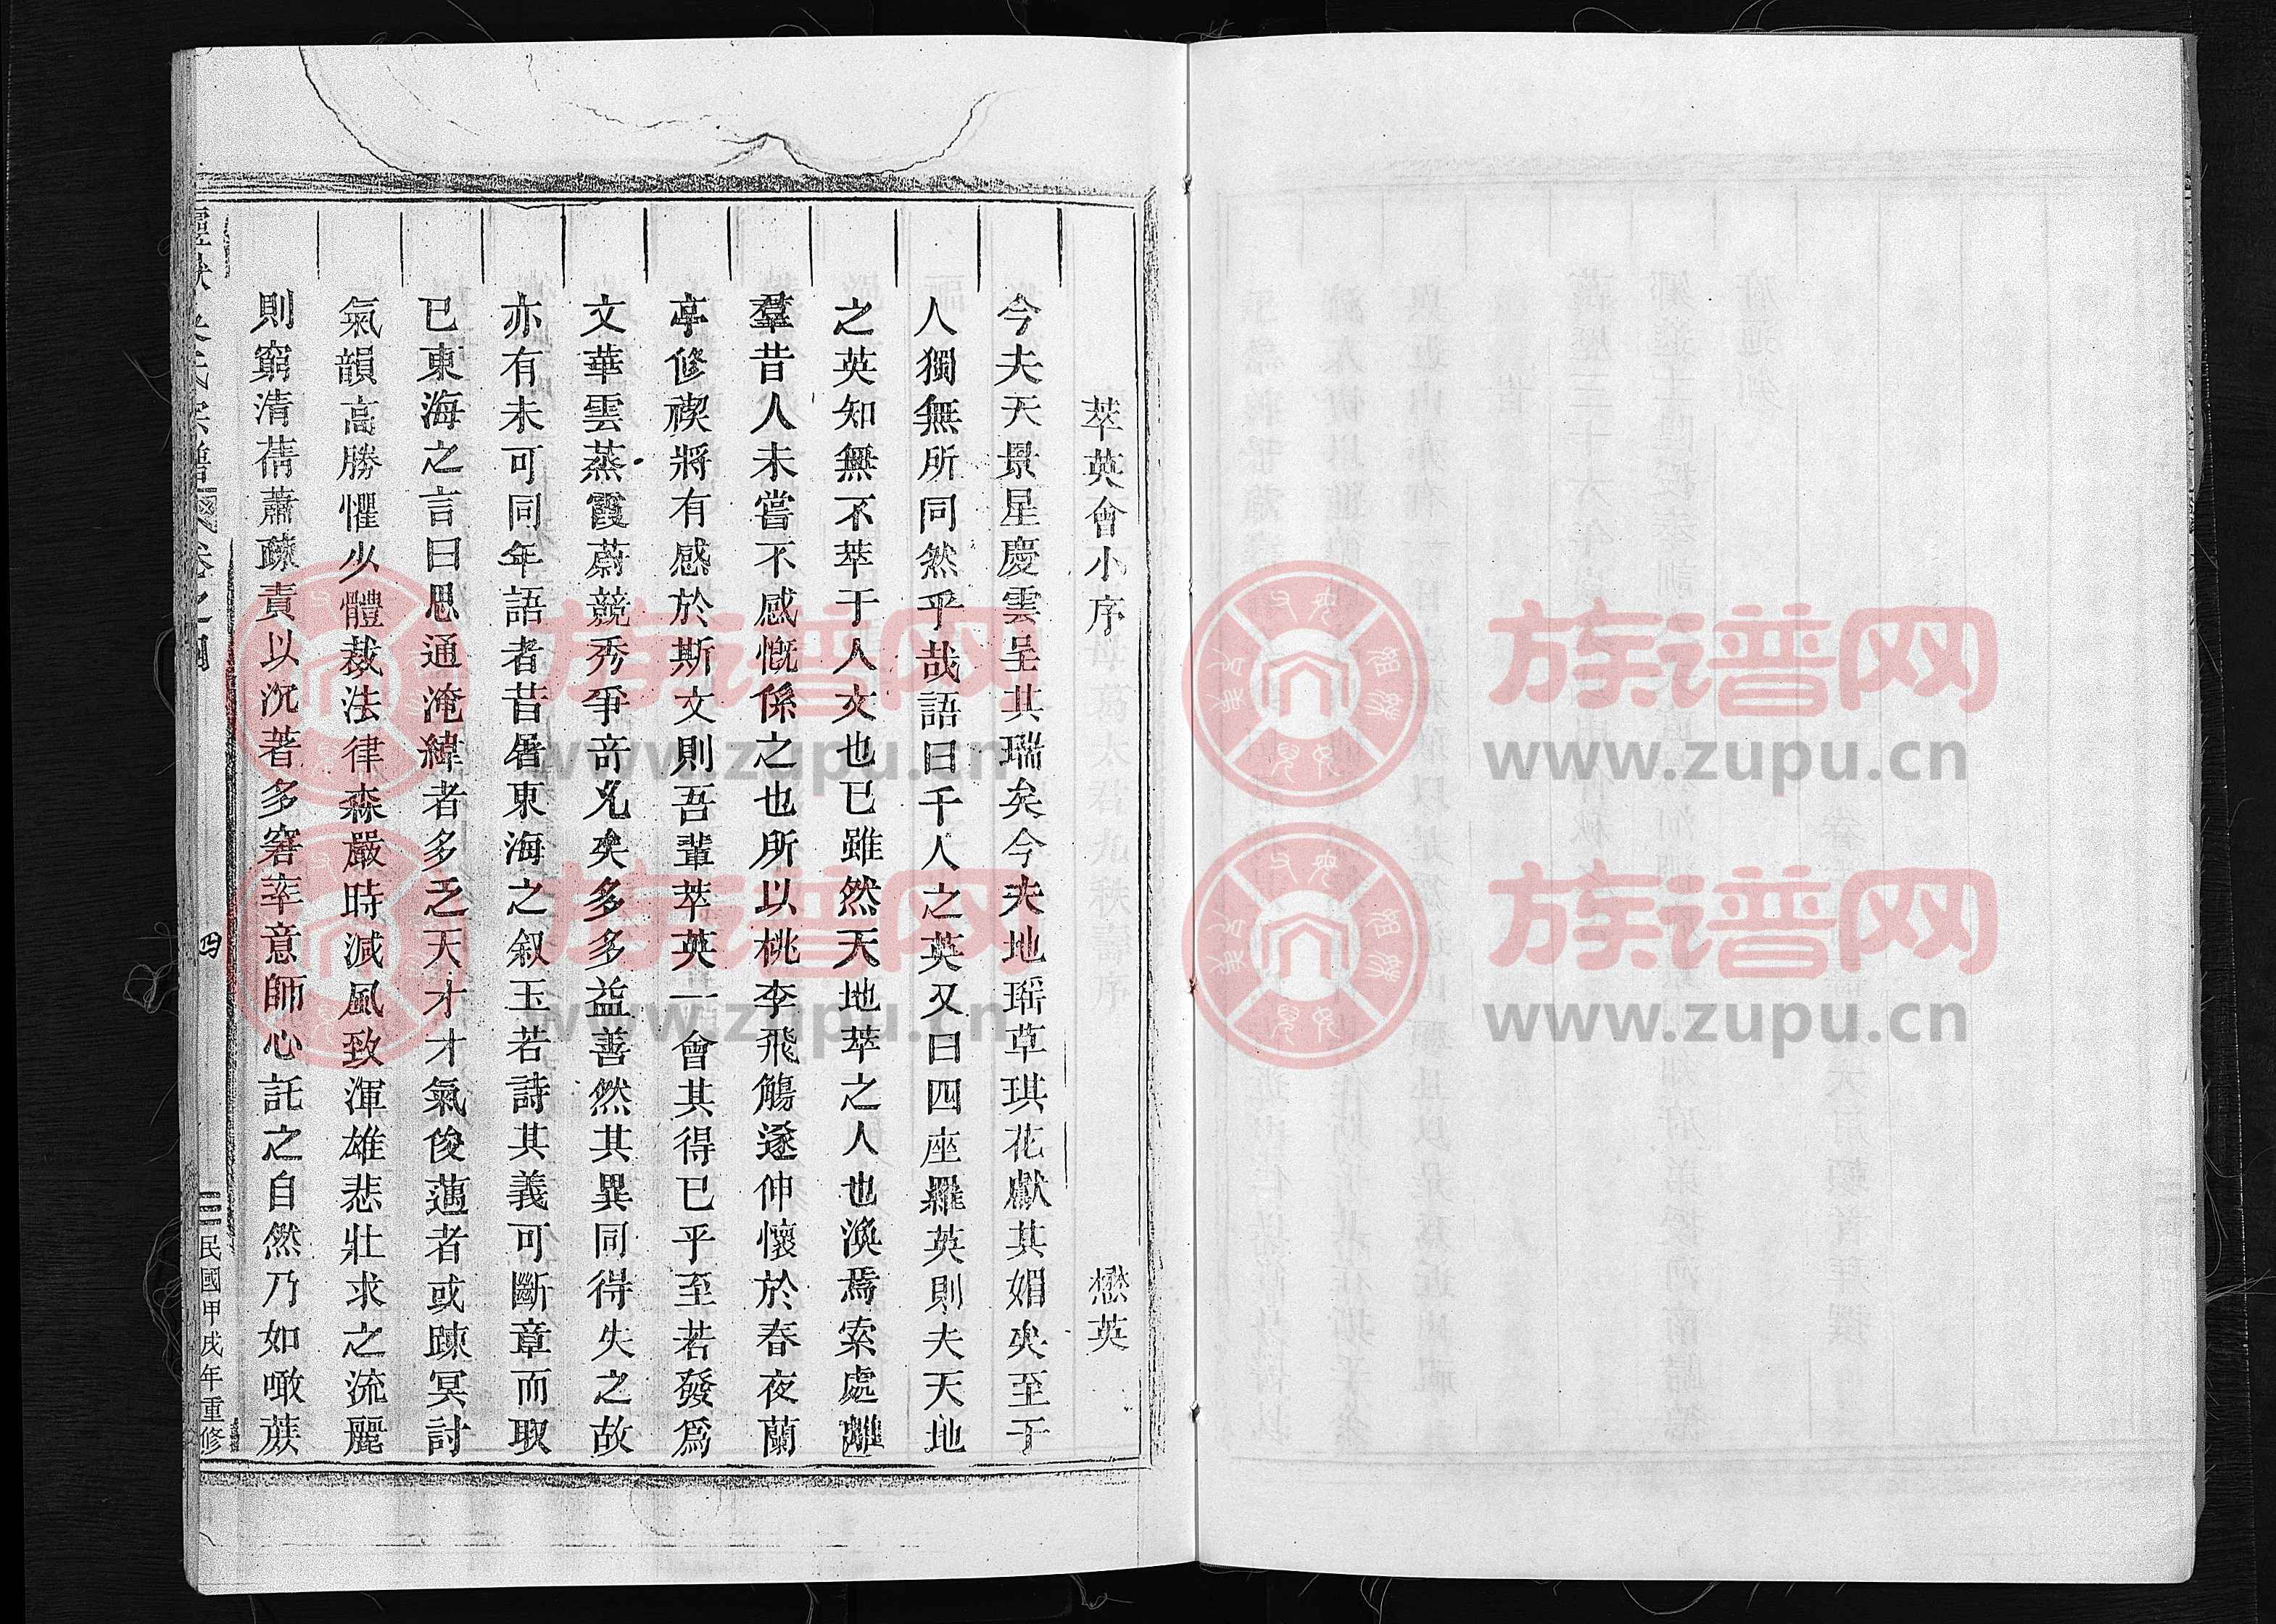 萃英會小序　懋英
今夫天景星慶雲呈其瑞矣今夫地瑶草琪花獻其媚矣至于
人獨無所同然乎哉語曰千人之英又曰四座羅英則夫天地
之英知無不萃于人文也已雖然天地萃之人也渙焉索處離
羣昔人未嘗不感慨係之也所以桃李飛觴遂伸懷於春夜蘭
亭修禊將有感於斯文則吾輩萃英一會其得已乎至若發為
文華雲蒸霞蔚競秀爭奇尤矣多多益善然其異同得失之故
亦有未可同年語者昔屠東海之叙玉若詩其義可斷章而取
已東海之言曰思通淹緯者多乏天才才氣俊邁者或踈冥討
氣韻高勝懼少體裁法律森嚴時減風致渾雄悲壯求之流麗
則窮清蒨蕭疎責以沉著多窘率意師心託之自然乃如噉蔗
氏宗譜 卷之四
四
民國甲戌年重修
族谱网
www.zupu.cn
族谱网
www.zupu.cn
族谱网
www.zupu.cn
族谱网
www.zupu.cn